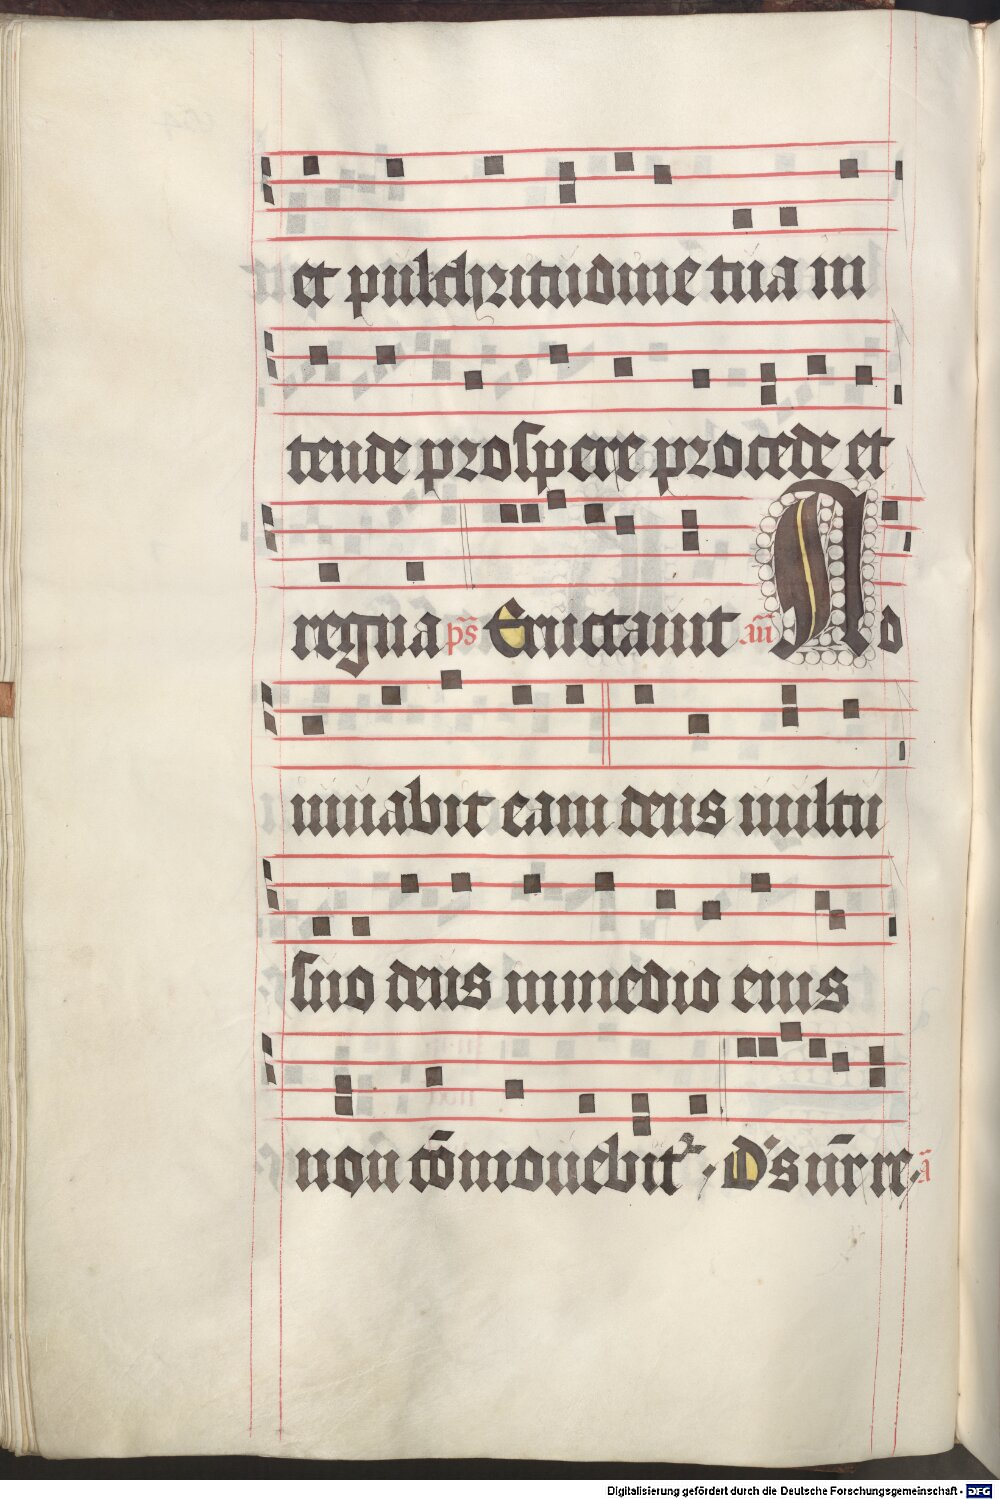 et pulchritudine tua in
tende prospere procede et
regna p̄s Eructauit an̄ Ad
iuuabit eam deus uultu
suo deus in medio eius
non cōmouebitᷣ. D's nr̄ re. ā
Digitalisierung gefördert durch die Deutsche Forschungsgemeinschaft - DFG